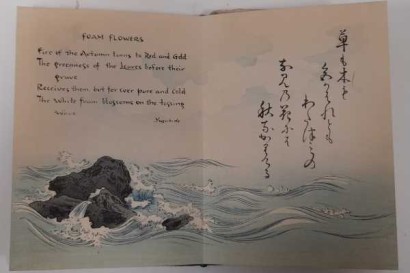 FOAM FLOWERS
Fire of the Autumn turns to Red and Gold
The greenness of the leaves before their
grave
Receives them, but for ever pure and Cold
The White foam blossoms on the tossing
wave
Yasuhide
草も木も
色かはれとも
わたつうみの
なみの花にそ
秋なかりける